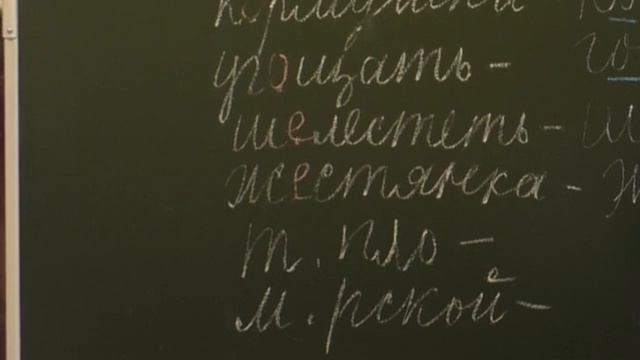 угощать - го
шелестеть - ш
жестянка - ж
т.пло -
м.рской -